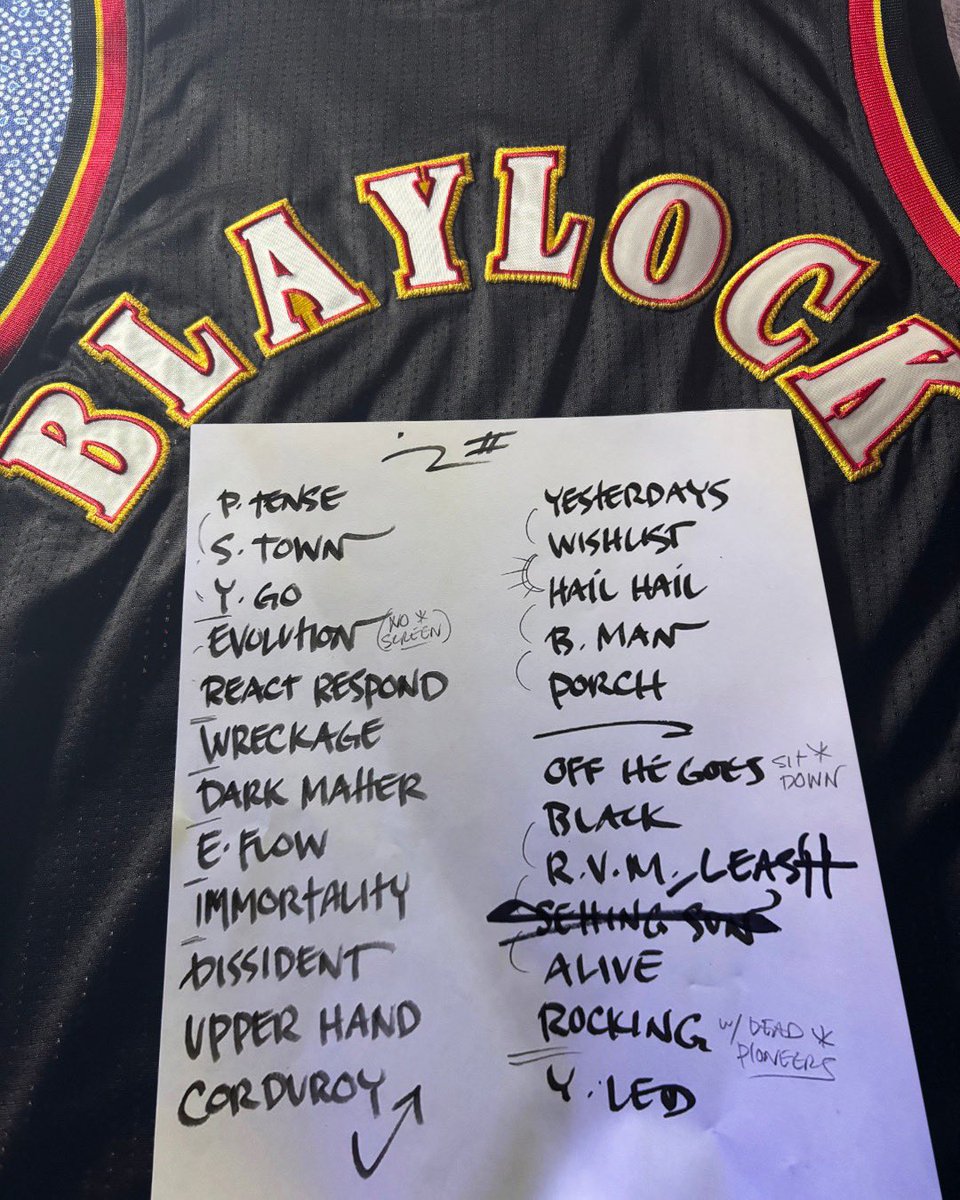 BLAYLOCK
P. TENSE
S. TOWN
Y. GO
EVOLUTION (NO * SCREEN)
REACT RESPOND
WRECKAGE
DARK MATTER
E. FLOW
IMMORTALITY
DISSIDENT
UPPER HAND
CORDUROY
YESTERDAYS
WISHLIST
HAIL HAIL
B. MAN
PORCH
OFF HE GOES SIT * DOWN
BLACK
R.V.M. / LEASH
SETTING SUN
ALIVE
ROCKING w/ DEAD * PIONEERS
Y. LED